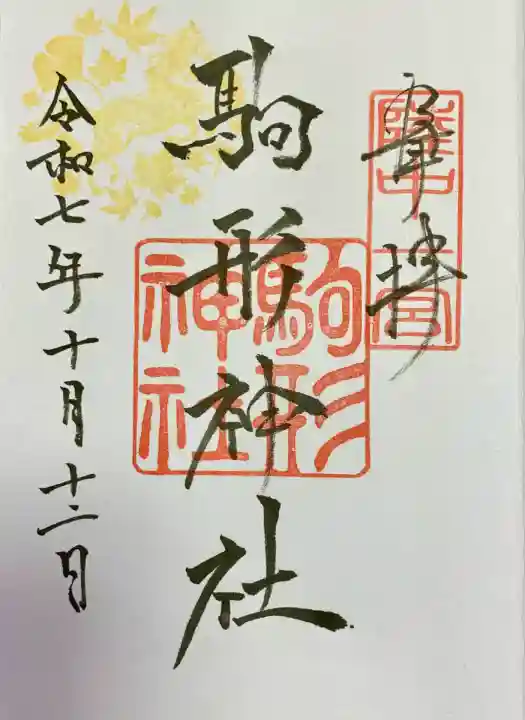 奉拝
陸中一宮
駒形神社
駒形神社
令和七年十月十二日